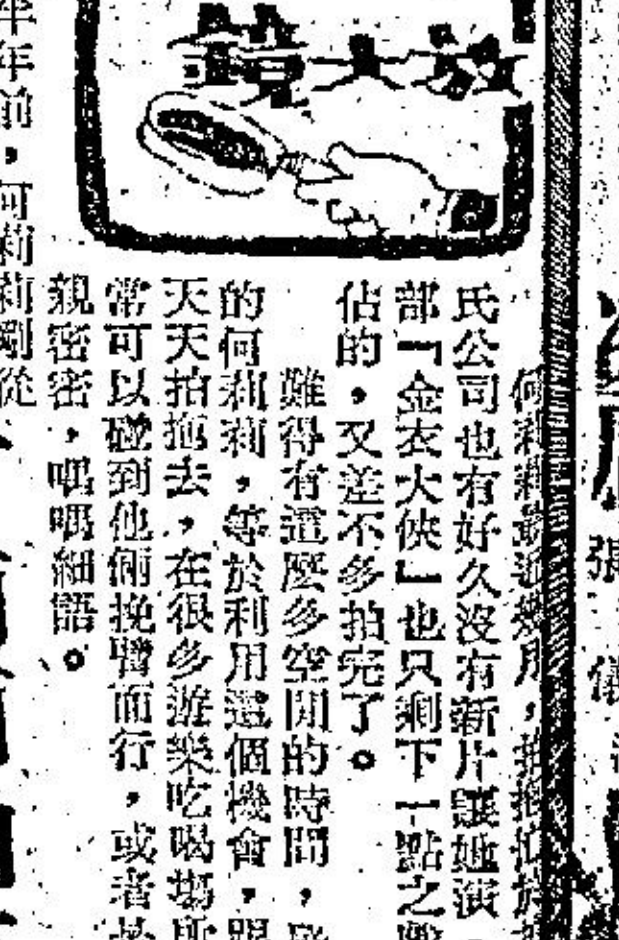 放大鏡
何莉莉最近幾月，
氏公司也有好久沒有新片讓她演，
部「金衣大俠」也只剩下一點之
佔的，又差不多拍完了。
難得有這麼多空閒的時間，
的何莉莉，等於利用這個機會，跟
天天拍拖去，在很多游樂吃喝場所
常可以碰到他倆挽臂而行，或者
親密密，喁喁細語。
半年前，何莉莉剛從
張
儀